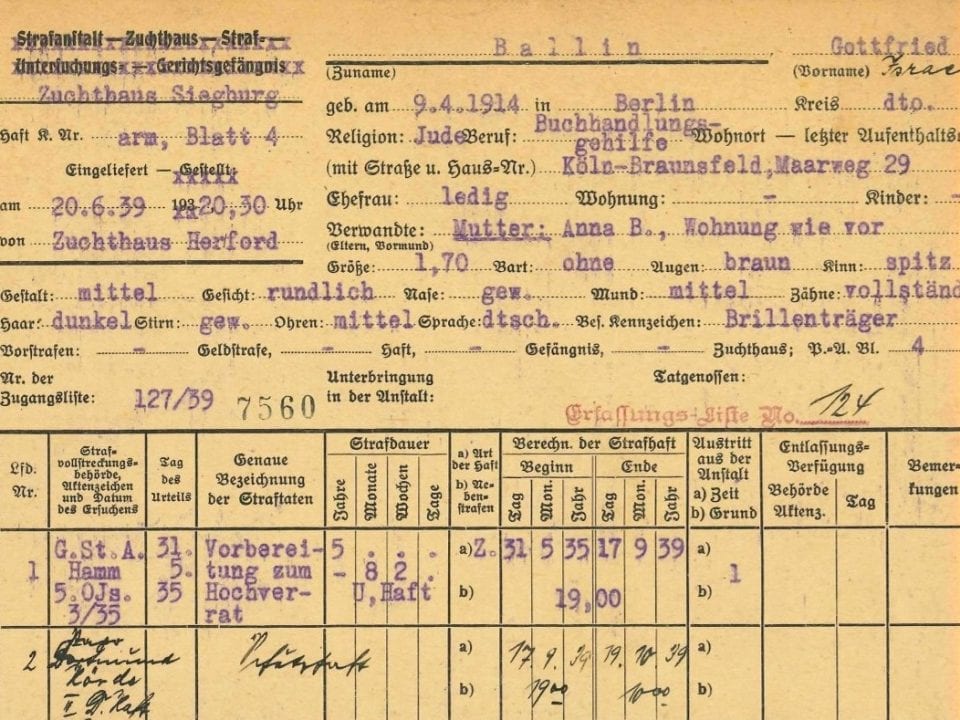 Strafanstalt — Zuchthaus — Straf- —
Untersuchungs- — Gerichtsgefängnis
Zuchthaus Siegburg
Haft K. Nr. arm, Blatt 4
Eingeliefert — Gestellt:
am 20.6.39 193 20,30 Uhr
von Zuchthaus Herford
Ballin Gottfried
(Zuname) (Vorname) Israe
geb. am 9.4.1914 in Berlin Kreis dto.
Religion: Jude Beruf: Buchhandlungs-gehilfe Wohnort — letzter Aufenthalts
(mit Straße u. Haus-Nr.) Köln-Braunsfeld, Maarweg 29
Ehefrau: ledig Wohnung: - Kinder: -
Verwandte: Mutter: Anna B., Wohnung wie vor
(Eltern, Vormund)
Größe: 1,70 Bart: ohne Augen: braun Kinn: spitz
Gestalt: mittel Gesicht: rundlich Nase: gew. Mund: mittel Zähne: vollständ
Haar: dunkel Stirn: gew. Ohren: mittel Sprache: dtsch. Bes. Kennzeichen: Brillenträger
Vorstrafen: - Geldstrafe, - Haft, - Gefängnis, - Zuchthaus; P.-A. Bl. 4
Nr. der Zugangsliste: 127/39 7560
Unterbringung in der Anstalt:
Tatgenossen:
Erfassungs-Liste No. 124
Lfd. Nr.
Straf-vollstreckungs-behörde, Aktenzeichen und Datum des Ersuchens
Tag des Urteils
Genaue Bezeichnung der Straftaten
Strafdauer
Jahre Monate Wochen Tage
a) Art der Haft b) Ne-ben-strafen
Berechn. der Strafhaft
Beginn Ende
Tag Mon. Jahr Tag Mon. Jahr
Austritt aus der Anstalt a) Zeit b) Grund
Entlassungs-Verfügung
Behörde Aktenz. Tag
Bemer-kungen
G.St.A. 31. Vorberei- 5 . . . a) Z. 31 5 35 17 9 39 a)
1 Hamm 5. tung zum - 8 2 . 1
5.OJs. 35 Hochver- U,Haft b) 19,00 b)
3/35 rat
2 Dortmund Schutzhaft a) 17. 9. 39 19. 10 39 a)
b) 19 00 10 00 b)
II